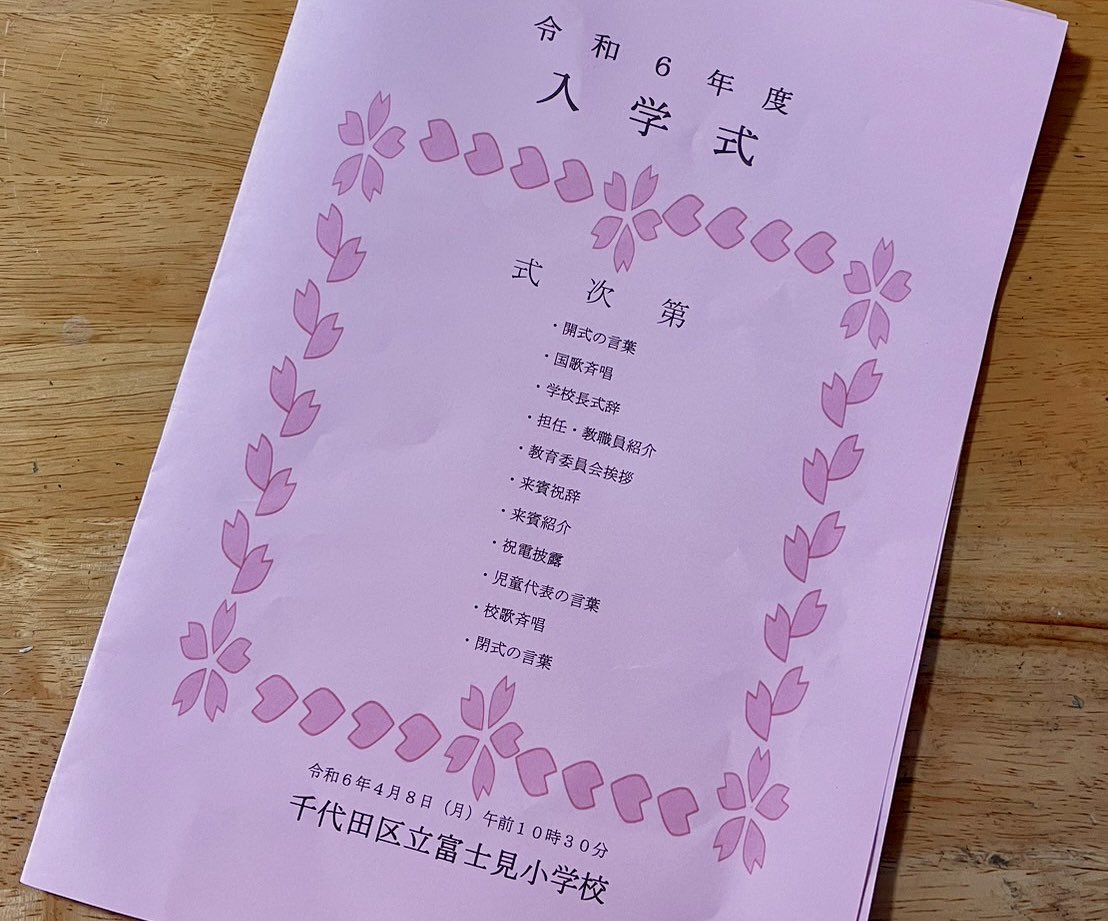 令和６年度
入学式
式次第
・開式の言葉
・国歌斉唱
・学校長式辞
・担任・教職員紹介
・教育委員会挨拶
・来賓祝辞
・来賓紹介
・祝電披露
・児童代表の言葉
・校歌斉唱
・閉式の言葉
令和６年４月８日（月）午前１０時３０分
千代田区立富士見小学校